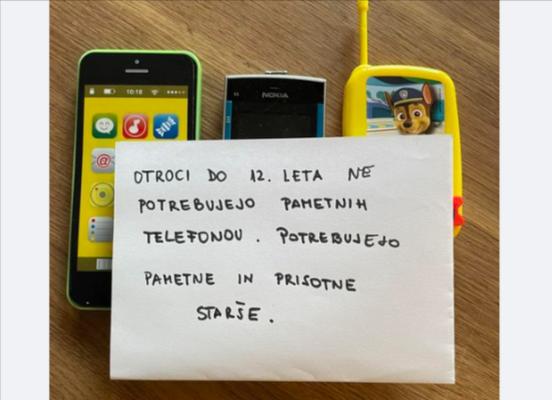 10:18
NOKIA
OTROCI DO 12. LETA NE
POTREBUJEJO PAMETNIH
TELEFONOV. POTREBUJEJO
PAMETNE IN PRISOTNE
STARŠE.